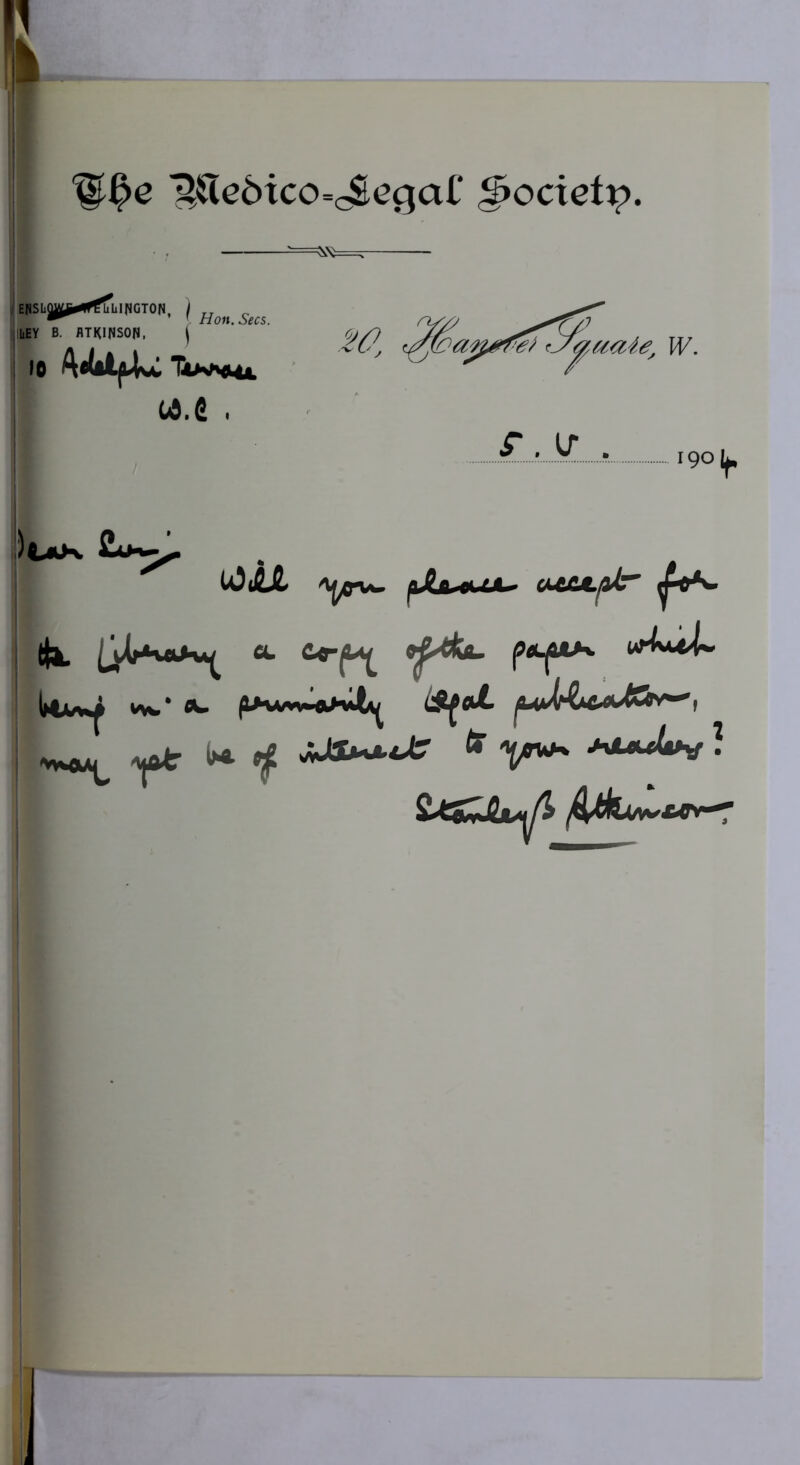 The Medico=Legal Society.
ENSLOW WELLINGTON, } Hon. Secs.
LEY B. ATKINSON,
20, Hanover Square, W.
10 Adelphi Terrace
W.C.
5. V. 1904
Dear
Will you please accept for
the Library a copy of the paper which
being in a primarily legal publication,
may not be of interest to your readers?
Stanley B Atkinson